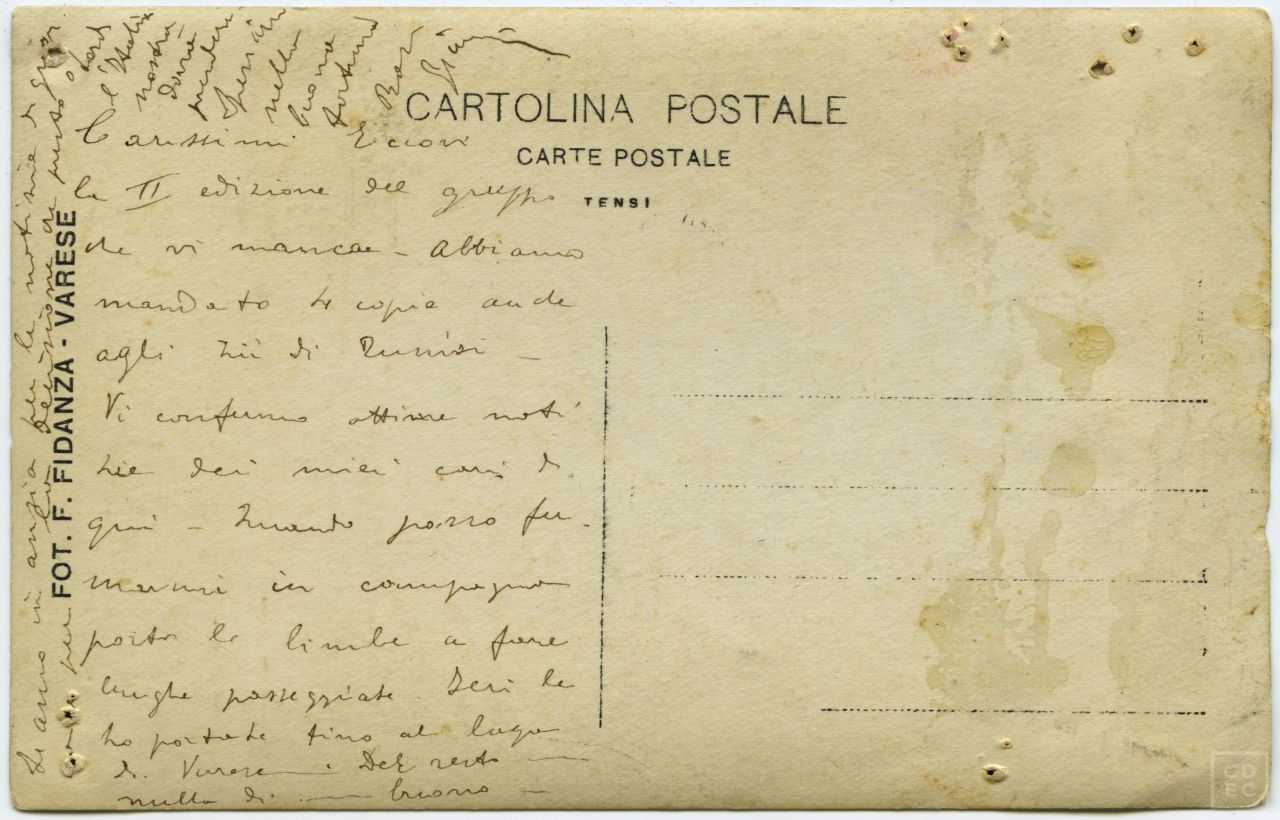 CARTOLINA POSTALE
CARTE POSTALE
TENSI
FOT. F. FIDANZA - VARESE
Carissimi Eccovi
la II edizione del gruppo
che vi manca - Abbiamo
mandato 4 copie anche
agli zii di Tunisi -
Vi confermo ottime noti
zie dei miei cari di
qui - Quando posso fer-
marmi in campagna
porto le bimbe a fare
lunghe passeggiate. Ieri le
ho portate fino al lago
di Varese - Del resto
nulla di buono -
Si sono in ansia per le notizie di
per la decisione che presto o tardi
l'Italia
nostra
dovrà
prendere
Speriamo
nella
buona
fortuna
Baci
CDEC